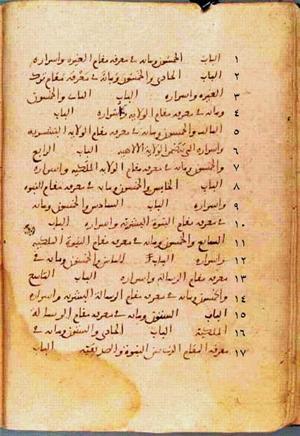 ١ الباب الخمسون وماتان في معرفة مقام الغيرة واسراره
٢ الباب الحادي والخمسون وماتان في معرفة مقام ترك
٣ الغيرة واسراره الباب الثاني والخمسون
٤ وماتان في معرفة مقام الولاية واسراره الباب
٥ الثالث والخمسون وماتان في معرفة مقام الولاية البشرية
٦ واسراره الباب الرابع
٧ والخمسون وماتان في معرفة مقام الولاية الملكية واسراره
٨ الباب الخامس والخمسون وماتان في معرفة مقام النبوة
٩ واسراره الباب السادس والخمسون وماتان
١٠ في معرفة مقام النبوة البشرية واسراره الباب
١١ السابع والخمسون وماتان في معرفة مقام النبوة الملكية
١٢ واسراره الباب الثامن والخمسون وماتان في
١٣ معرفة مقام الرسالة واسراره الباب التاسع
١٤ والخمسون وماتان في معرفة مقام الرسالة البشرية واسراره
١٥ الباب الستون وماتان في معرفة مقام الرسالة
١٦ الملكية الباب الحادي والستون وماتان في
١٧ معرفة المقام النبوة والصديقية الباب